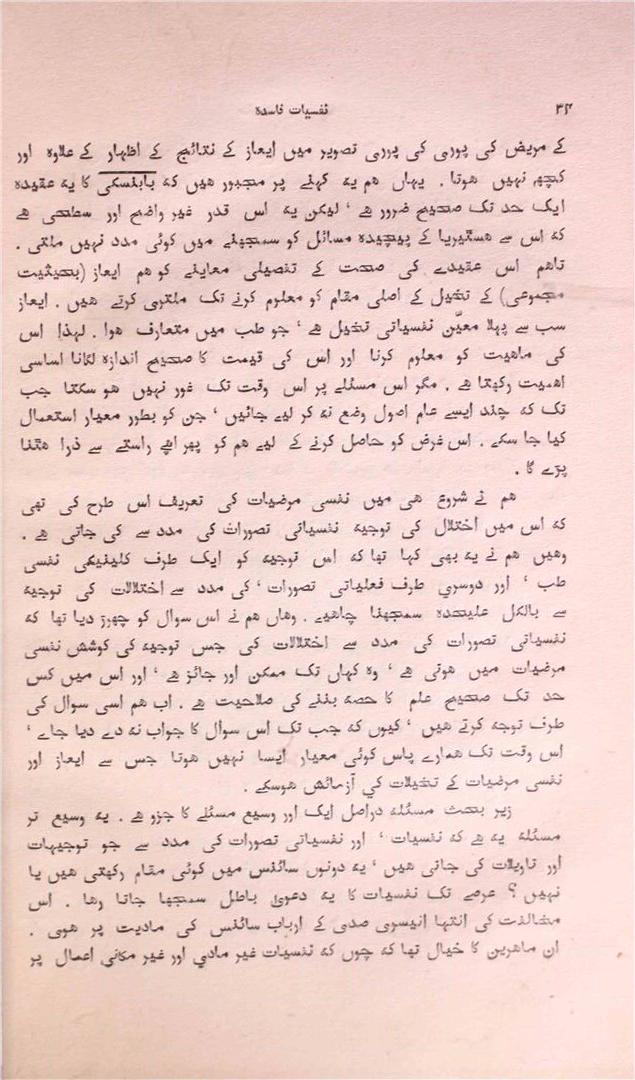 ۳۴ نفسیات فاسدہ
کے مریض کی پوری کی پوری تصویر میں ایعاز کے نتائج کے اظہار کے علاوہ اور
کچھ نہیں ہوتا ۔ یہاں ہم یہ کہنے پر مجبور ہیں کہ بابنسکی کا یہ عقیدہ
ایک حد تک صحیح ضرور ہے ، لیکن یہ اس قدر غیر واضح اور سطحی ہے
کہ اس سے ہسٹیریا کے پیچیدہ مسائل کو سمجھنے میں کوئی مدد نہیں ملتی ۔
تاہم اس عقیدے کی صحت کے تفصیلی معاینے کو ہم ایعاز (بحیثیت
مجموعی) کے تخیل کے اصلی مقام کو معلوم کرنے تک ملتوی کرتے ہیں ۔ ایعاز
سب سے پہلا معیّن نفسیاتی تخیل ہے ، جو طب میں متعارف ہوا ۔ لہذا اس
کی ماہیت کو معلوم کرنا اور اس کی قیمت کا صحیح اندازہ لگانا اساسی
اہمیت رکھتا ہے ۔ مگر اس مسئلے پر اس وقت تک غور نہیں ہو سکتا جب
تک کہ چند ایسے عام اصول وضع نہ کر لیے جائیں ، جن کو بطور معیار استعمال
کیا جا سکے ۔ اس غرض کو حاصل کرنے کے لیے ہم کو پھر اپنے راستے سے ذرا ہٹنا
پڑے گا ۔
ہم نے شروع ہی میں نفسی مرضیات کی تعریف اس طرح کی تھی
کہ اس میں اختلال کی توجیہ نفسیاتی تصورات کی مدد سے کی جاتی ہے ۔
وہیں ہم نے یہ بھی کہا تھا کہ اس توجیہ کو ایک طرف کلینیکی نفسی
طب ، اور دوسری طرف فعلیاتی تصورات ، کی مدد سے اختلالات کی توجیہ
سے بالکل علیحدہ سمجھنا چاہیے ۔ وہاں ہم نے اس سوال کو چھوڑ دیا تھا کہ
نفسیاتی تصورات کی مدد سے اختلالات کی جس توجیہ کی کوشش نفسی
مرضیات میں ہوتی ہے ، وہ کہاں تک ممکن اور جائز ہے ، اور اس میں کس
حد تک صحیح علم کا حصہ بننے کی صلاحیت ہے ۔ اب ہم اسی سوال کی
طرف توجہ کرتے ہیں ، کیوں کہ جب تک اس سوال کا جواب نہ دے دیا جاے ،
اس وقت تک ہمارے پاس کوئی معیار ایسا نہیں ہوتا جس سے ایعاز اور
نفسی مرضیات کے تخیلات کی آزمائش ہوسکے ۔
زیر بحث مسئلہ دراصل ایک اور وسیع مسئلے کا جزو ہے ۔ یہ وسیع تر
مسئلہ یہ ہے کہ نفسیات ، اور نفسیاتی تصورات کی مدد سے جو توجیہات
اور تاویلات کی جاتی ہیں ، یہ دونوں سائنس میں کوئی مقام رکھتی ہیں یا
نہیں ؟ عرصے تک نفسیات کا یہ دعویٰ باطل سمجھا جاتا رہا ۔ اس
مخالفت کی انتہا انیسویں صدی کے ارباب سائنس کی مادیت پر ہوی ۔
ان ماہرین کا خیال تھا کہ چوں کہ نفسیات غیر مادی اور غیر مکانی اعمال پر